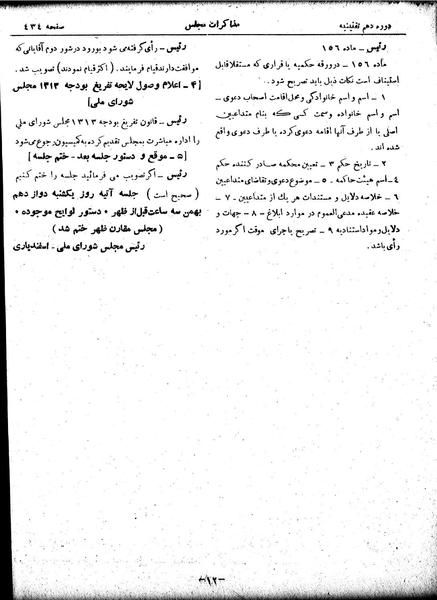 دوره دهم تقنینیه
مذاکرات مجلس
صفحه ٤٣٤
رئیس – ماده ۱۵۶
ماده ۱۵۶ – در ورقه حکمیه یا قراری که مستقلا قابل
استیناف است نکات ذیل باید تصریح شود .
۱ – اسم و اسم خانوادگی و محل اقامت اصحاب دعوی –
اسم و اسم خانواده و سمت کسی که بنام متداعیین
اصلی یا از طرف آنها اقامه دعوی کرده یا طرف دعوی واقع
شده اند .
۲ – تاریخ حکم ۳ – تعیین محکمه صادر کننده حکم
٤ – اسم هیئت حاکمه . ٥ – موضوع دعوی و تقاضای متداعیین
٦ – خلاصه دلایل و مستندات هر یك از متداعیین . ۷ –
خلاصه عقیده مدعی العموم در موارد ابلاغ – ۸ – جهات و
دلایل و مواد استنادیه ۹ – تصریح باجرای موقت اگر مورد
رأی باشد .
رئیس – رأی گرفته می شود بورود در شور دوم آقایانی که
موافقت دارند قیام فرمایند . (اکثر قیام نمودند) تصویب شد .
[٤ – اعلام وصول لایحه تفریغ بودجه ۱۳۱۳ مجلس
شورای ملی]
رئیس – قانون تفریغ بودجه ۱۳۱۳ مجلس شورای ملی
را اداره مباشرت بمجلس تقدیم کرده به کمیسیون رجوع می شود
[٥ – موقع و دستور جلسه بعد – ختم جلسه]
رئیس – اگر تصویب می فرمائید جلسه را ختم کنیم
(صحیح است) جلسه آتیه روز یکشنبه دوازدهم
بهمن سه ساعت قبل از ظهر . دستور لوایح موجوده .
(مجلس مقارن ظهر ختم شد)
رئیس مجلس شورای ملی – اسفندیاری
–۱۲–